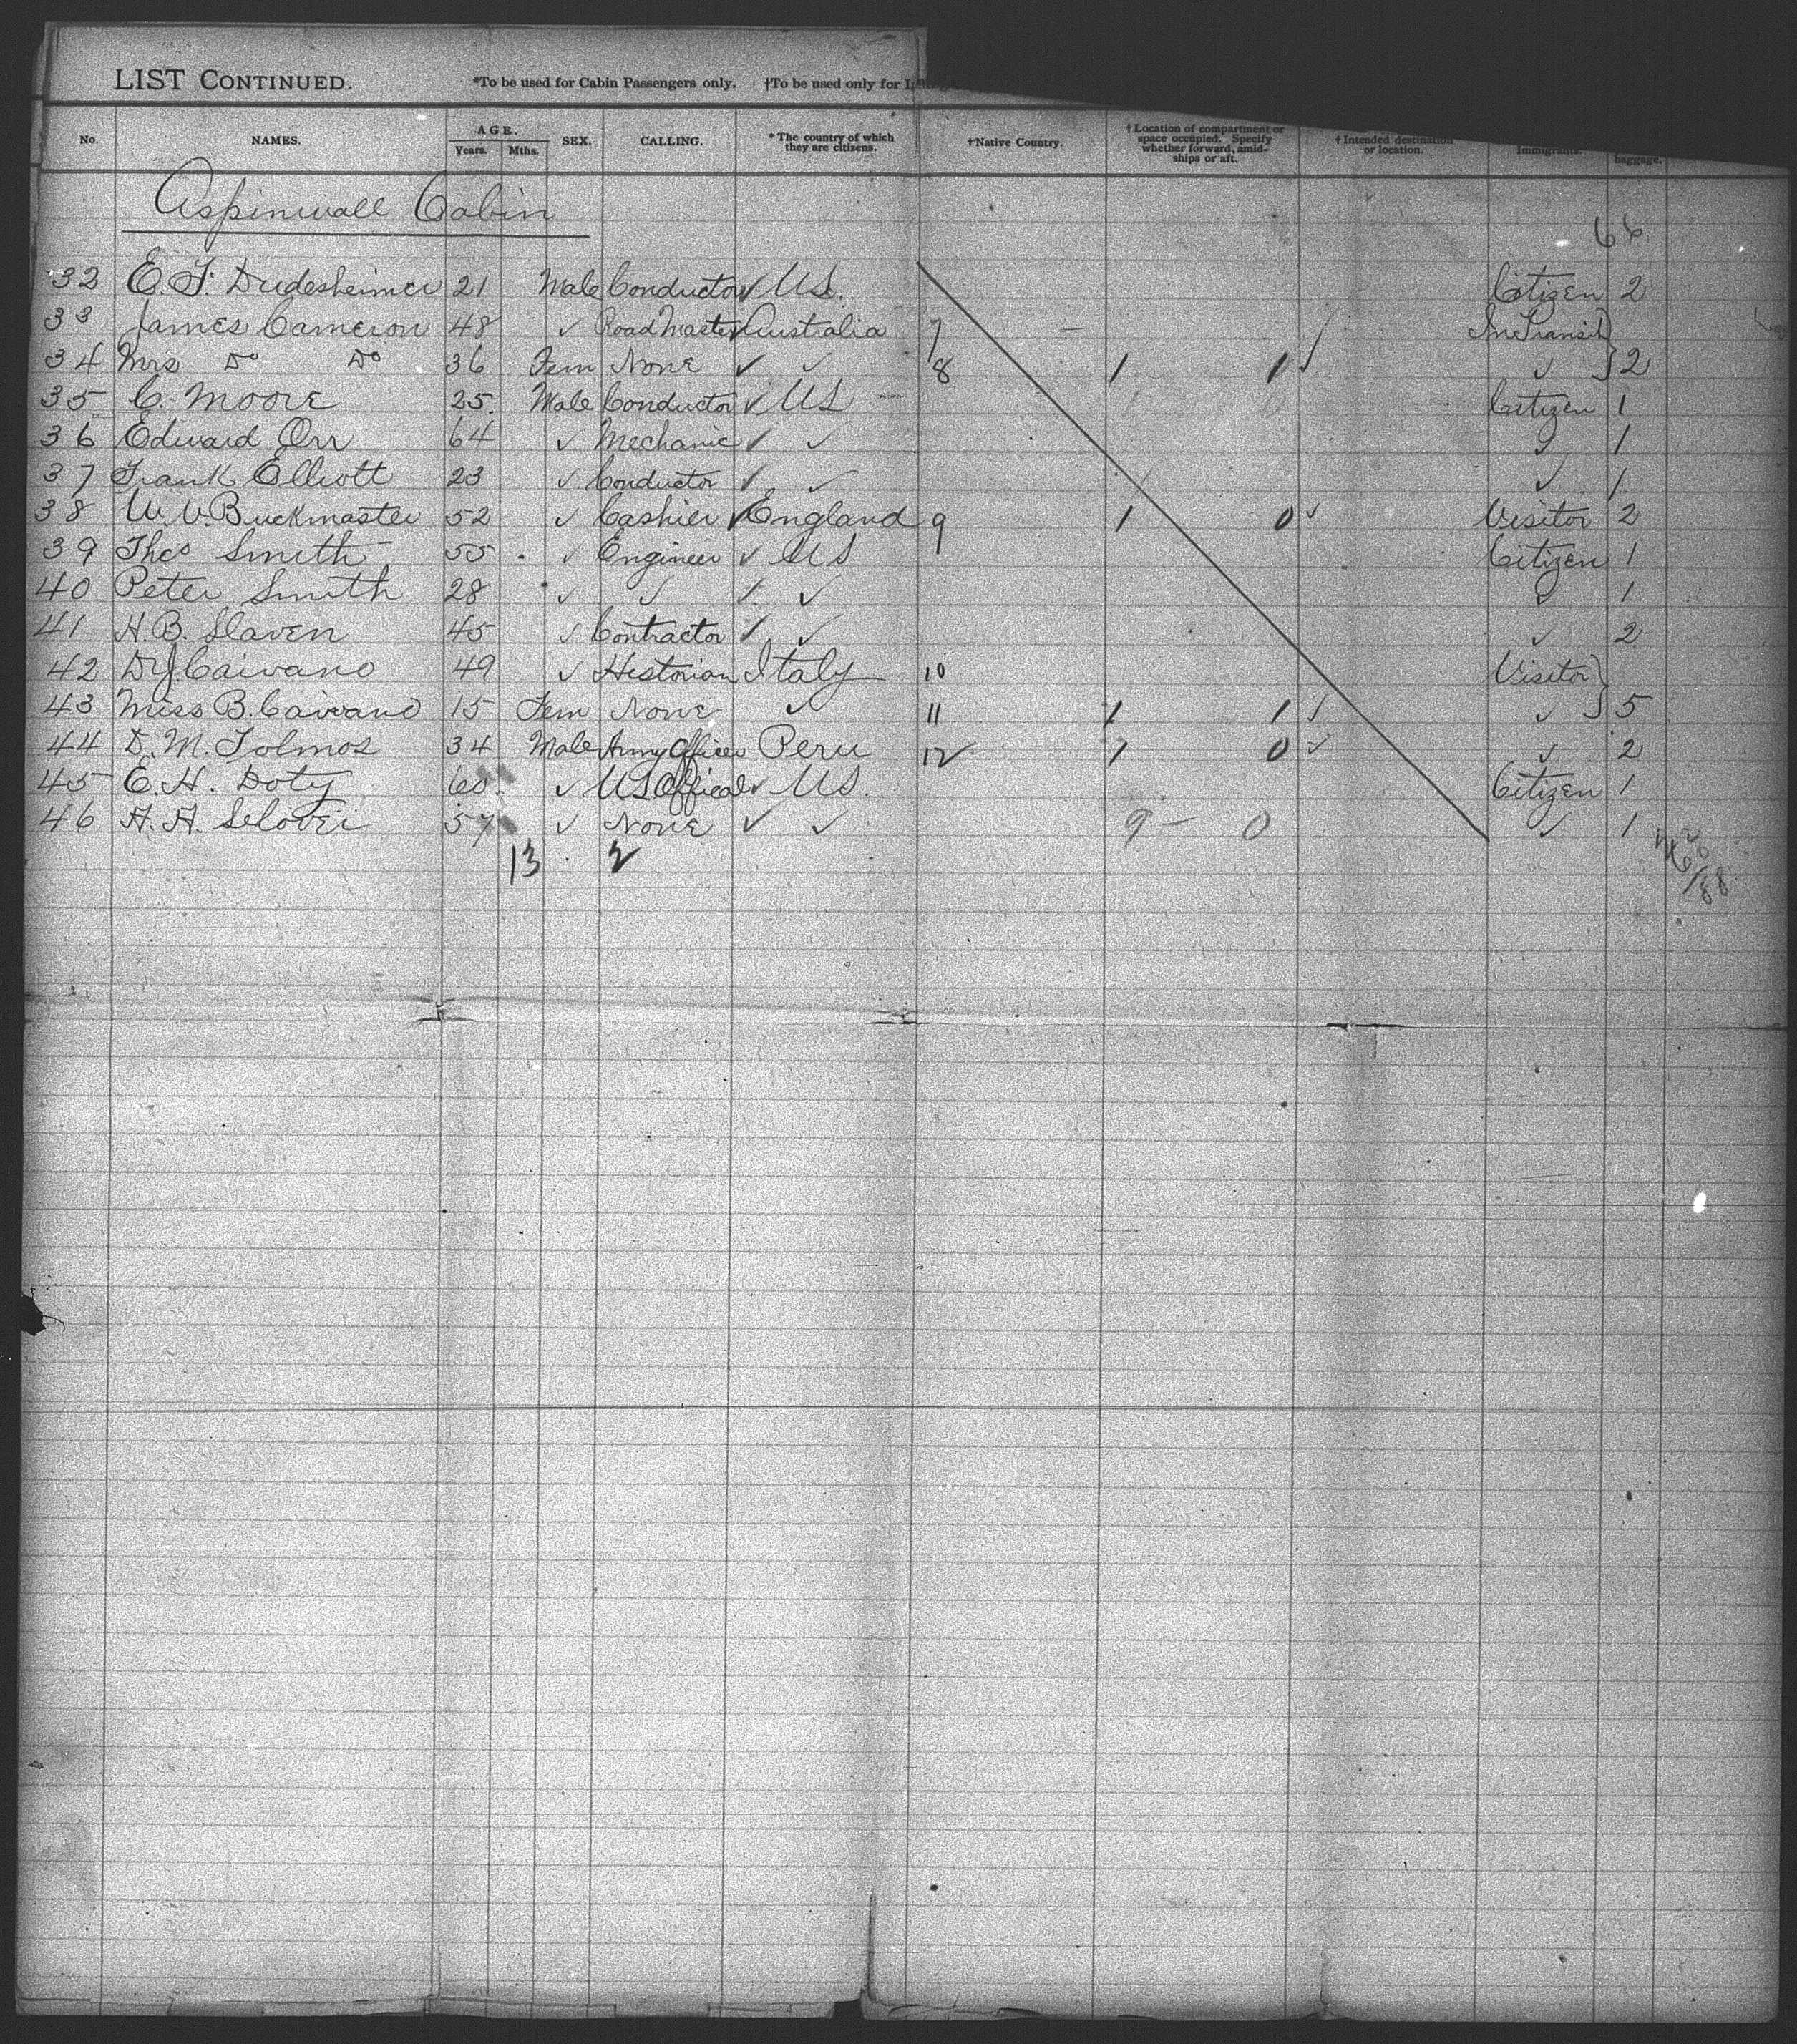 LIST CONTINUED. *To be used for Cabin Passengers only. †To be used only for
No. NAMES. AGE. Years. Mths. SEX. CALLING. *The country of which they are citizens. †Native Country. †Location of compartment or space occupied. Specify whether forward, amidships or aft. †Intended destination or location. Immigrants. baggage.
Aspinwall Cabin
66
32 21 Male Conductor ✓ US. Citizen 2
33 James Cameron 48 ✓ Road Master ✓ Australia 7 — In Transit
34 Mrs Do Do 36 Fem None ✓ ✓ 8 1 1 ✓ ✓ 2
35 C. Moore 25 Male Conductor ✓ US — Citizen 1
36 Edward Orr 64 ✓ Mechanic ✓ ✓ ✓ 1
37 Frank Elliott 23 ✓ Conductor ✓ ✓ ✓ 1
38 W. V. Buckmaster 52 ✓ Cashier ✓ England 9 1 0 ✓ Visitor 2
39 Theo Smith 55 ✓ Engineer ✓ US Citizen 1
40 Peter Smith 28 ✓ ✓ ✓ ✓ ✓ 1
41 H. B. Slaven 45 ✓ Contractor ✓ ✓ ✓ 2
42 Dr J Caivano 49 ✓ Historian Italy 10 Visitor
43 Miss B. Caivano 15 Fem None ✓ 11 1 1 ✓ ✓ 5
44 D. M. Tolmos 34 Male Army Officer Peru 12 ✓ 1 0 ✓ ✓ 2
45 E. H. Doty 60 ✓ US Offical ✓ US. Citizen 1
46 A. A. Selover 57 ✓ None ✓ ✓ 9 — 0 ✓ 1
13 2